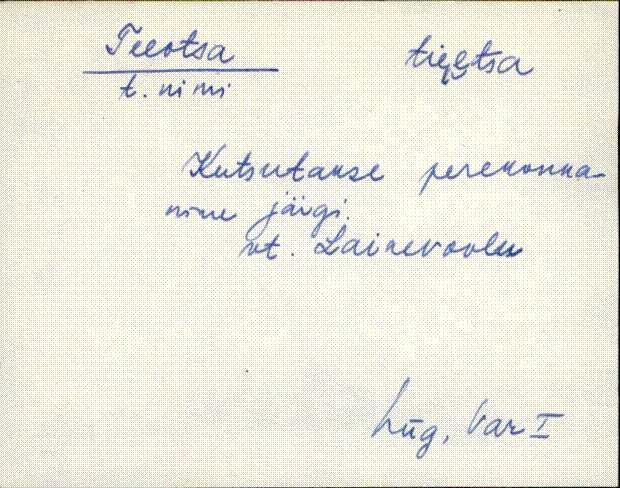 Teeotsa tieotsa
t. nimi
Kutsutakse perekonna-
nime järgi.
vt. Lainevoolu
Lüg, Var I